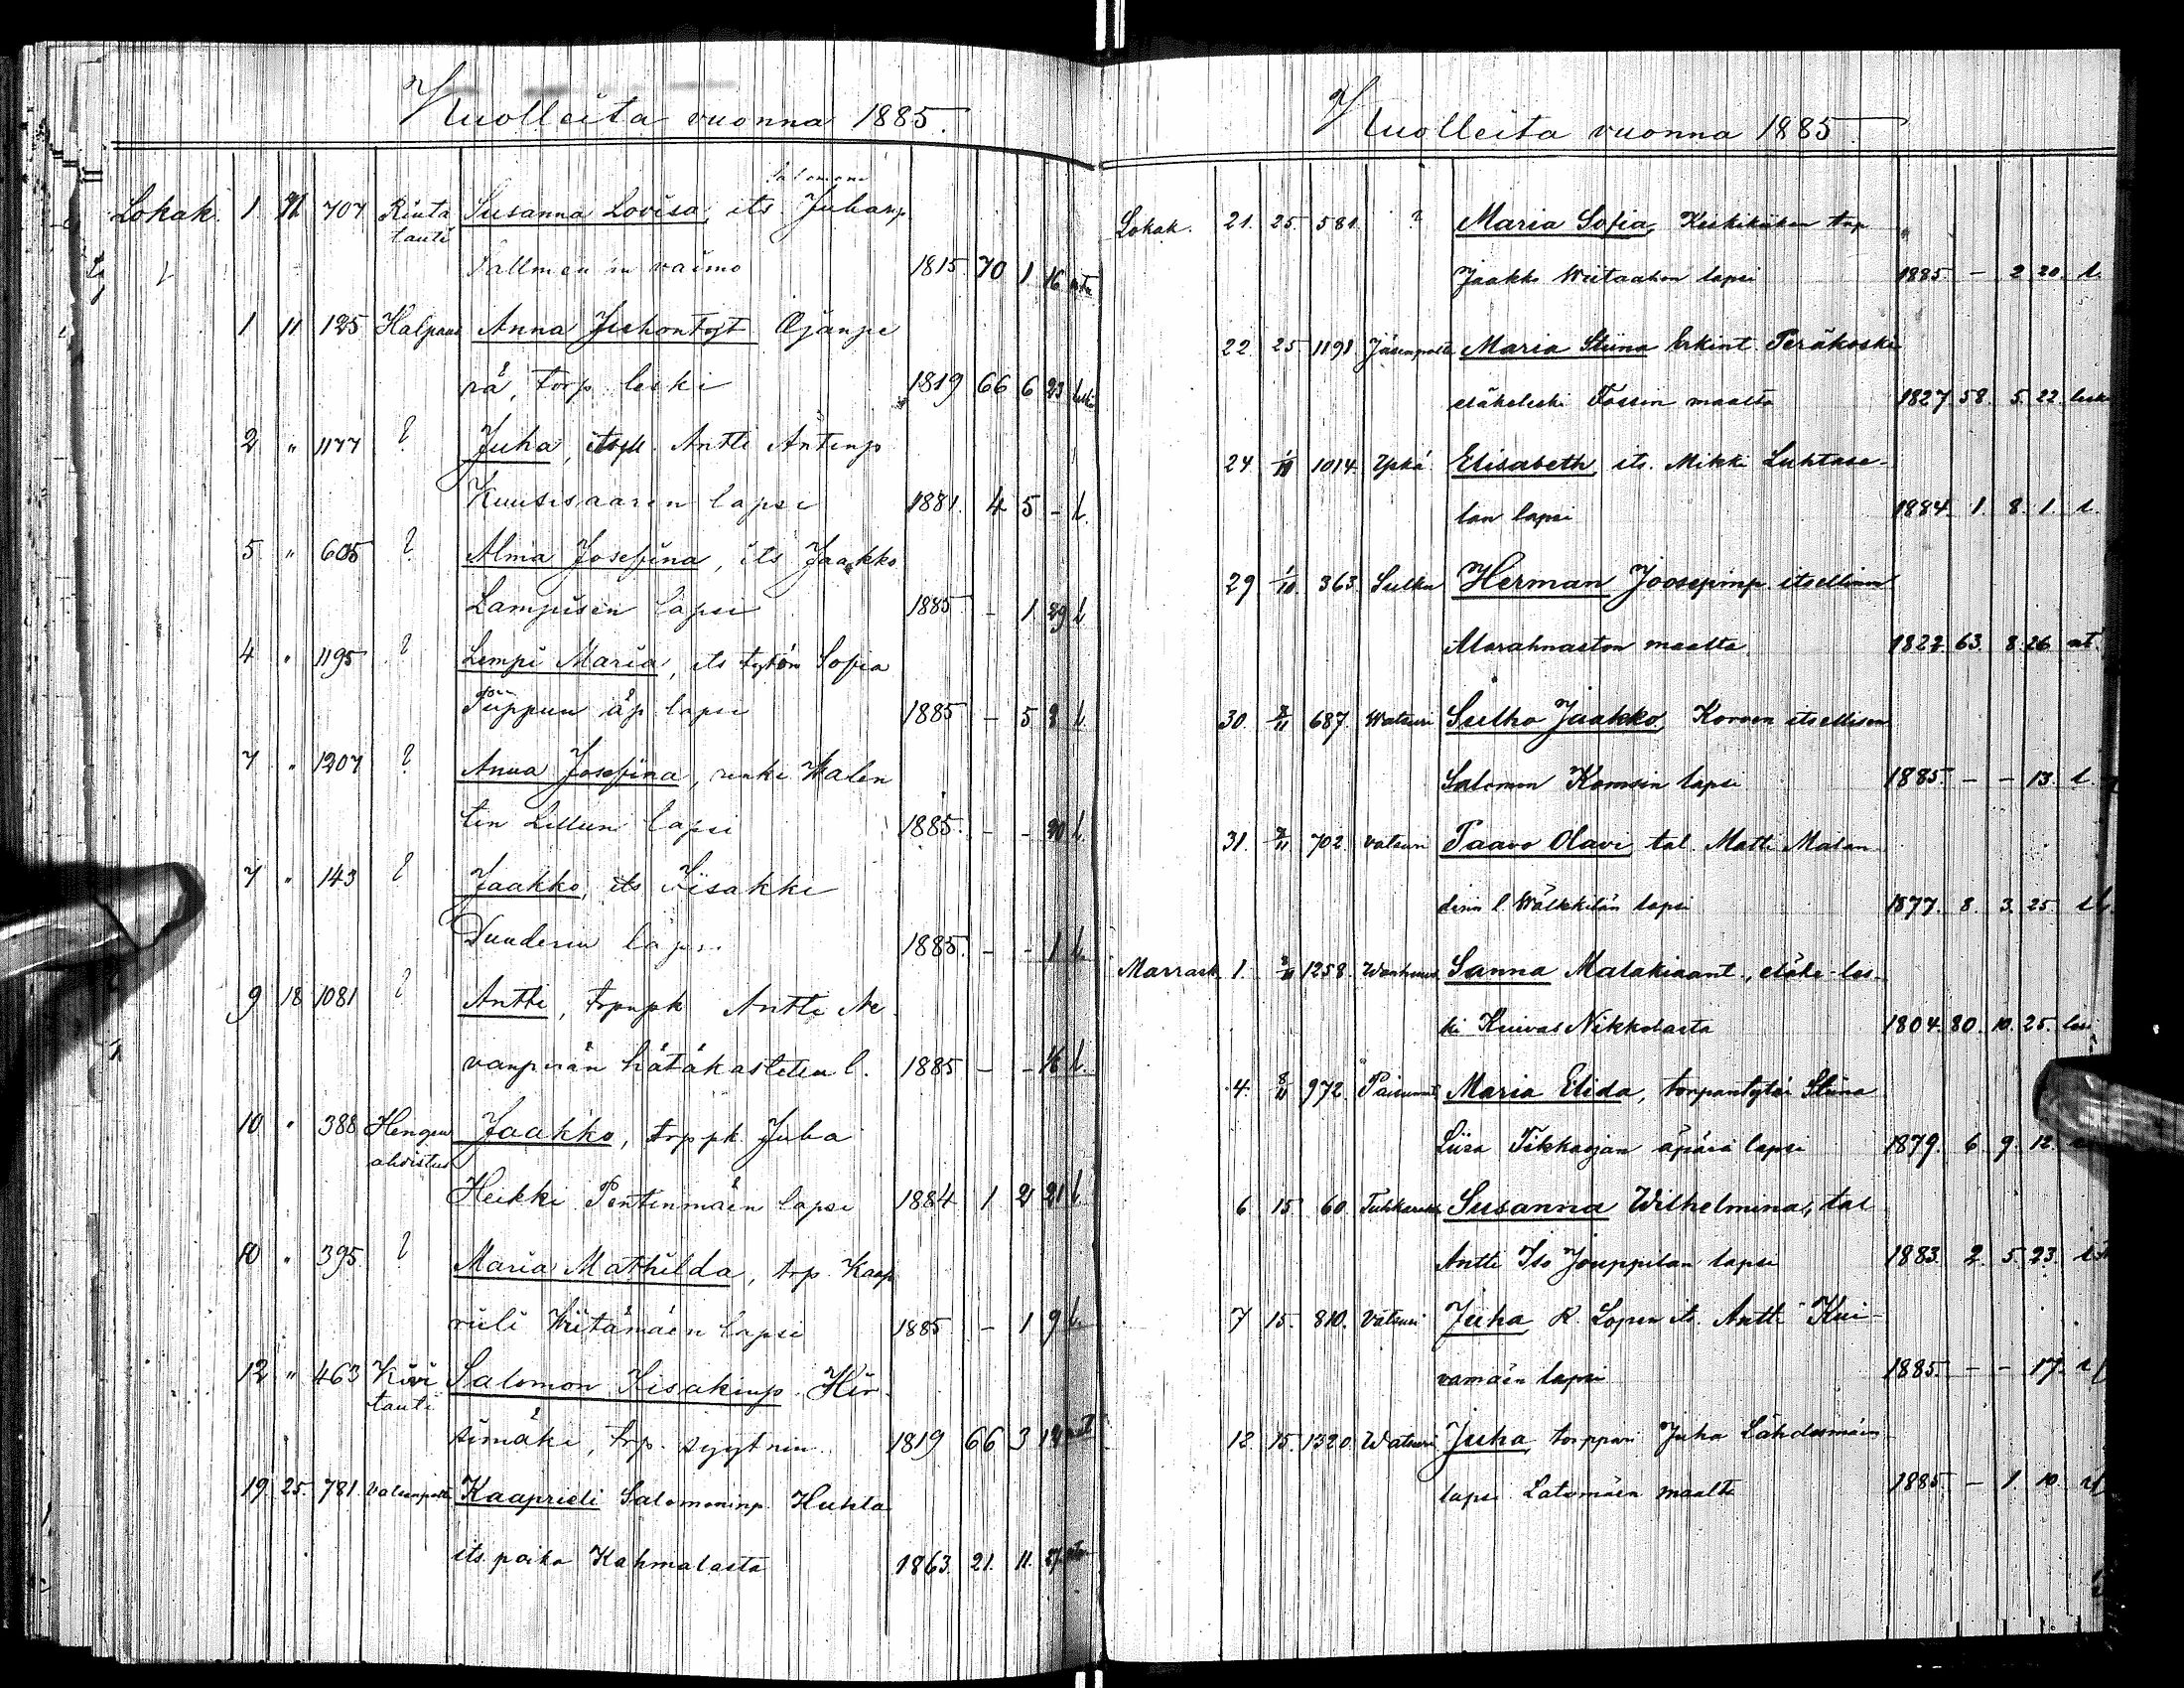 Kuolleita vuonna 1885.
Salomoni
Lokak. 1. 11 707 Rinta Susanna Lovisa, its. Juhanp.
tauti
Tallmanin vaimo 1815. 70 1 16
1 11 125 Halpaus Anna Juhontyt Äjänpe
rä, torp. leski 1819 66 6 23 leski
2 " 1177 ? Juha, itsell. Antti Antinp
Kuusisaaren lapsi 1881. 4 5 - l.
5. " 605 ? Alma Josefina, its Jaakko
Lampisen lapsi 1885 - 1 29 l
4 " 1195 ? Lempi Maria, its tytön Sofia
äp. lapsi 1885 - 5 l.
7 " 1207 ? Anna Josefina, renki Walen
tin Lillun lapsi 1885. - - 20 l.
7 " 143 ? Jaakko, its Iisakki
Dunderin lapsi 1885. - - 1 l.
9 18 1081 ? Antti, Antti Ne
vanperän hätäkasteten l. 1885 - - 16 l.
10 " 388 Hengen Jaakko, torp pk. Juha
ahdistus
Heikki Pentinmäen lapsi 1884 1 2 21 l.
10 " 395 ? Maria Mathilda, trp. Kaap
rieli Wiitamäen lapsi 1885 - 1 9 l.
12 " 463 Kivi Salomon Iisakinp. Hir
tauti
simäki, trp. syytnin 1819 66 3
19 25. 781 Vatsanpolte Kaaprieli Salomoninp. Huhta
its. poika Kahmalasta 1863. 21. 11.
Kuolleita vuonna 1885.
Lokak. 21. 25. 581. ? Maria Sofia, Keskikiikan trp
Jaakko Wiitaahon lapsi 1885. - 2 20. l.
22. 25 1191 Jäsenpolte Maria Stiina Erkint. Peräkoski
eläkeleski Fossin maalta 1827. 58. 5. 22. leski
24 1/11 1014. Yskä Elisabeth, its. Mikki Luhtase-
lan lapsi 1884. 1. 8. 1. l.
29 1/11 363. Sulku Herman Joosepinp. itsellinen
Marahnaston maalta 1822 63. 8. 26 nt.
30. 8/11 687. Watsuri Sulho Jaakko, Korven itsellisen
Salomon Komsin lapsi 1885 - - 13. l.
31. 8/11 702. vatsuri Paavo Olavi, tal. Matti Malan
derin l. Wälkkilän lapsi 1877. 8. 3. 25 l.
Marrask 1. 8/11 1258. Wanhuus. Sanna Malakiaant., eläke-les-
ki Kuivas Nikkolasta 1804. 80. 10. 25. les
4. 8/11 972. Maria Elida, torpantytö Stiina
Liisa Tikkaojan äpärä lapsi 1879. 6 9. 12.
6 15 60. Tuhkarokko Susanna Wilhelmina, tal
Antti Iso Jouppilan lapsi 1883. 2. 5. 23.
7 15. 810. Vatsuri Juha R. Lopen its. Antti Kui-
vamäen lapsi 1885. - - 17. l
12. 15. 1320. Watsuri Juha, torppari Juha Lähdesmäen
lapsi Latomäen maalta 1885. - 1. 10.